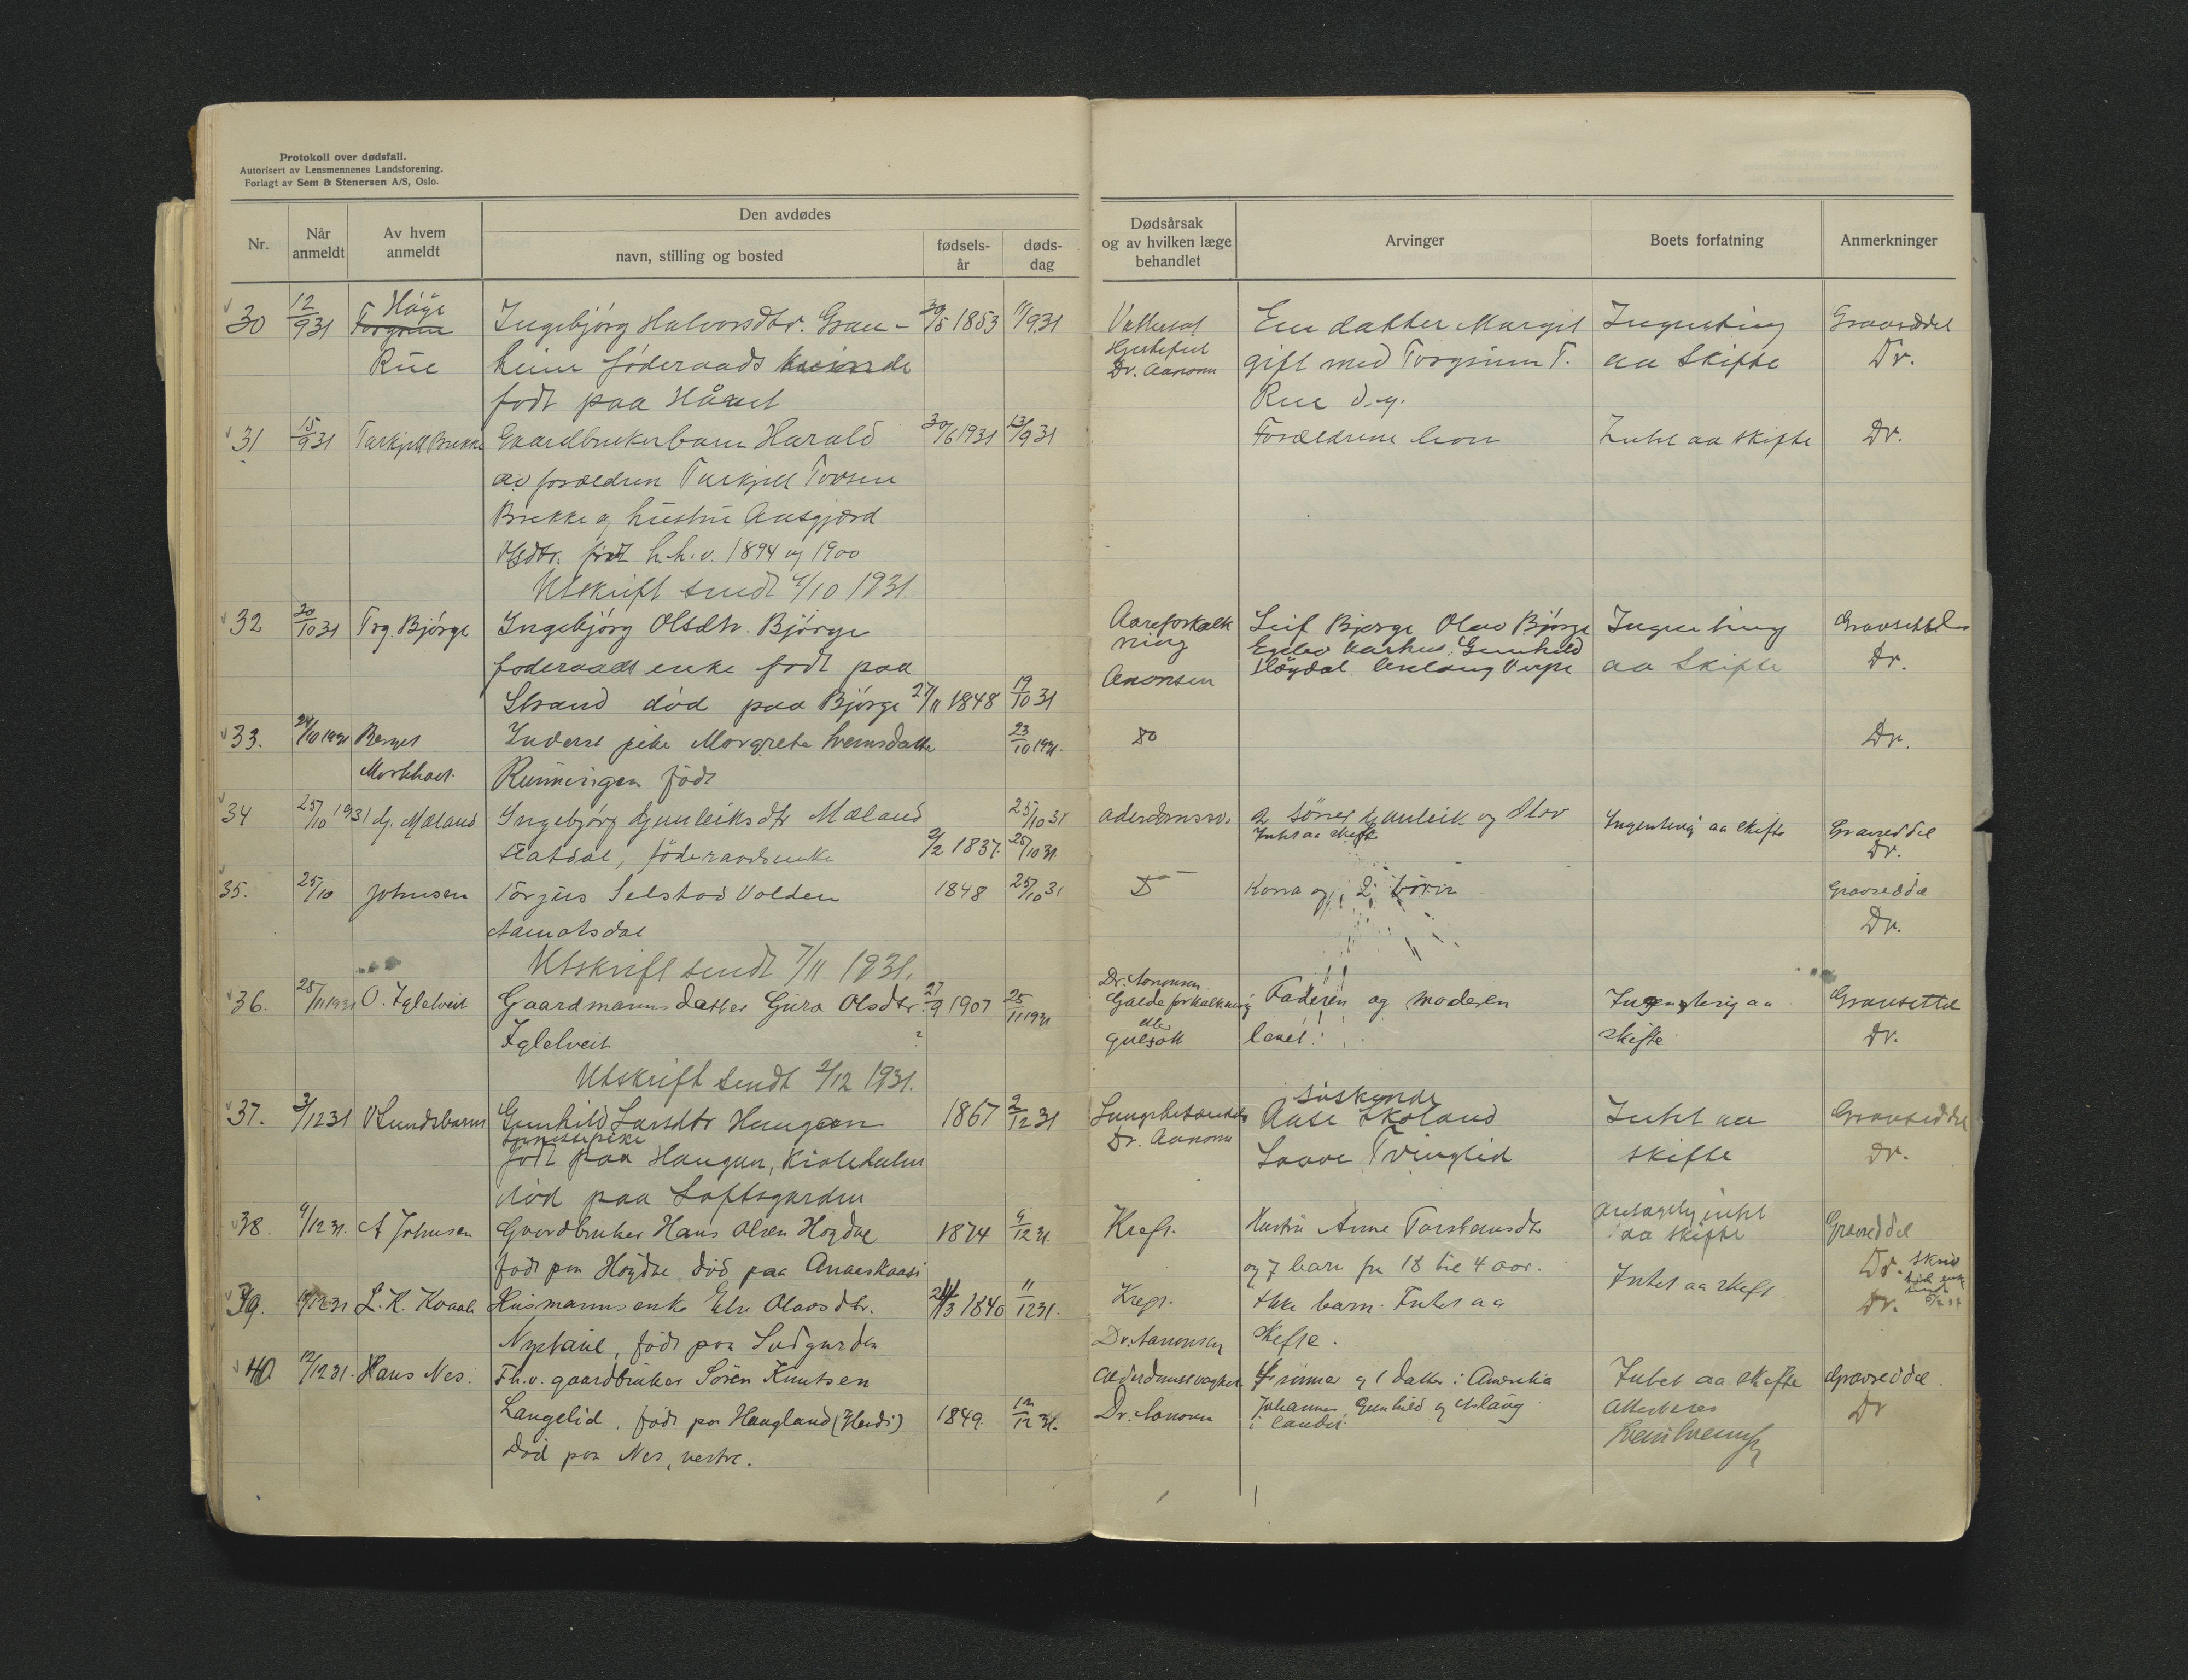 Protokoll over dødsfall.
Autorisert av Lensmennenes Landsforening.
Forlagt av Sem & Stenersen A/S, Oslo.
Nr.
Når anmeldt
Av hvem anmeldt
Den avdødes
navn, stilling og bosted
fødsels-år
døds-dag
Dødsårsak og av hvilken læge behandlet
Arvinger
Boets forfatning
Anmerkninger
30 12/9 31 Håge Ingebjörg Halvorsdtr. Graa- 30/5 1853 11/9 31 Vattersot En datter Margit Ingenting Gravseddel
Rue heim föderaads kvinde Hjertefeil Dr. Aanonsen gift med Torgrim T. aa Skifte Dr.
født paa Rue d.y.
31 15/9 31 Tarkjell Brekke Gaardbrukerbarn Harald 30/6 1931 13/9 31 Forældrene lever Intet aa skifte Dr.
av forældren Tarkjell Tovsen
Brekke og hustru
født h.h.v. 1894 og 1900
Utskrift sendt 4/10 1931.
32 20/10 31 Trg. Björge Ingebjörg Olsdtr. Björge Aareforkalk Leif Bjørge Olav Bjørge Ingenting Gravseddel
föderaads enke födt paa ning Gunhild
Strand död paa Björge 27/11 1848 19/10 31 Aanonsen Höydal aa Skifte Dr.
33. 24/10 1931 Berget Inderst pike Margrete Sveinsdatter 23/10 1931. Do Dr.
Morkhaet Runningen född
34 25/10 1931 G. Mæland Ingebjörg Gunleiksdtr Mæland 25/10 31 2 sönner Gunleik og Olav Ingenting aa skifte Gravseddel
föderaadsenke 9/2 1837. 25/10 31. Intet aa skifte Dr.
35. 25/10 Johnsen Torjus Selstad Volden 1848 25/10 31 D Kona og 2 Gravseddel
Aamotsdal Dr.
Utskrift sendt 7/11 1931.
36. 28/11 1931 O. Iglelveit Gaardmanns datter Guro Olsdtr. 27/9 1907 25/11 1931 Dr. Aanonsen Faderen og moderen Ingenting aa Gravsettel
Iglelveit ? eller gulsott lever skifte Dr.
Utskrift sendt 2/12 1931.
37. 3/12 31 V Lundsbarm Gunhild Larsdtr Haugen 1867 2/12 31 Lungebetændelse söskende Aase Skoland Intet aa Gravseddel
Født paa Haugen, Dr. Aanonsen Tvinglid skifte Dr.
død paa Loftsgarden
38. 9/12 31. A Johnsen Gaardbruker Hans Olsen Høydal 1874 9/12 31 Kreft. Hustru Anne Torsteinsdtr antagelig intet aa skifte Gravseddel
født paa Höydal död paa og 7 barn fra 18 til 4 aar. Dr.
39. 12/12 31 L. K. Kvaale Husmannsenke Else Olavsdtr. 21/3 1840 11/12 31. Kreft. Ikke barn. Intet aa Intet aa skift Dr.
født paa Sudgarden Dr. Aanonsen skifte.
40 12/12 31. Hans Nes. Fh.v. gaardbruker Sören Knutsen 4 sönner og 1 datter i Amerika Intet aa skifte Gravseddel.
Langelid. født paa Haugland 1849. 12/12 31. Dr. Aanonsen Johannes, Gunhild og Aslaug Attesteres Dr
Död paa Nes, vestre.